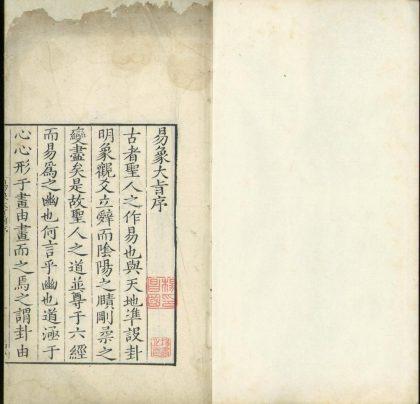 易象大旨序
古者聖人之作易也與天地準設卦
明象觀爻立辤而陰陽之賾剛柔之
變盡矣是故聖人之道並尊于六經
而易爲之幽也何言乎幽也道涵于
心心形于畫由畫而之焉之謂卦由